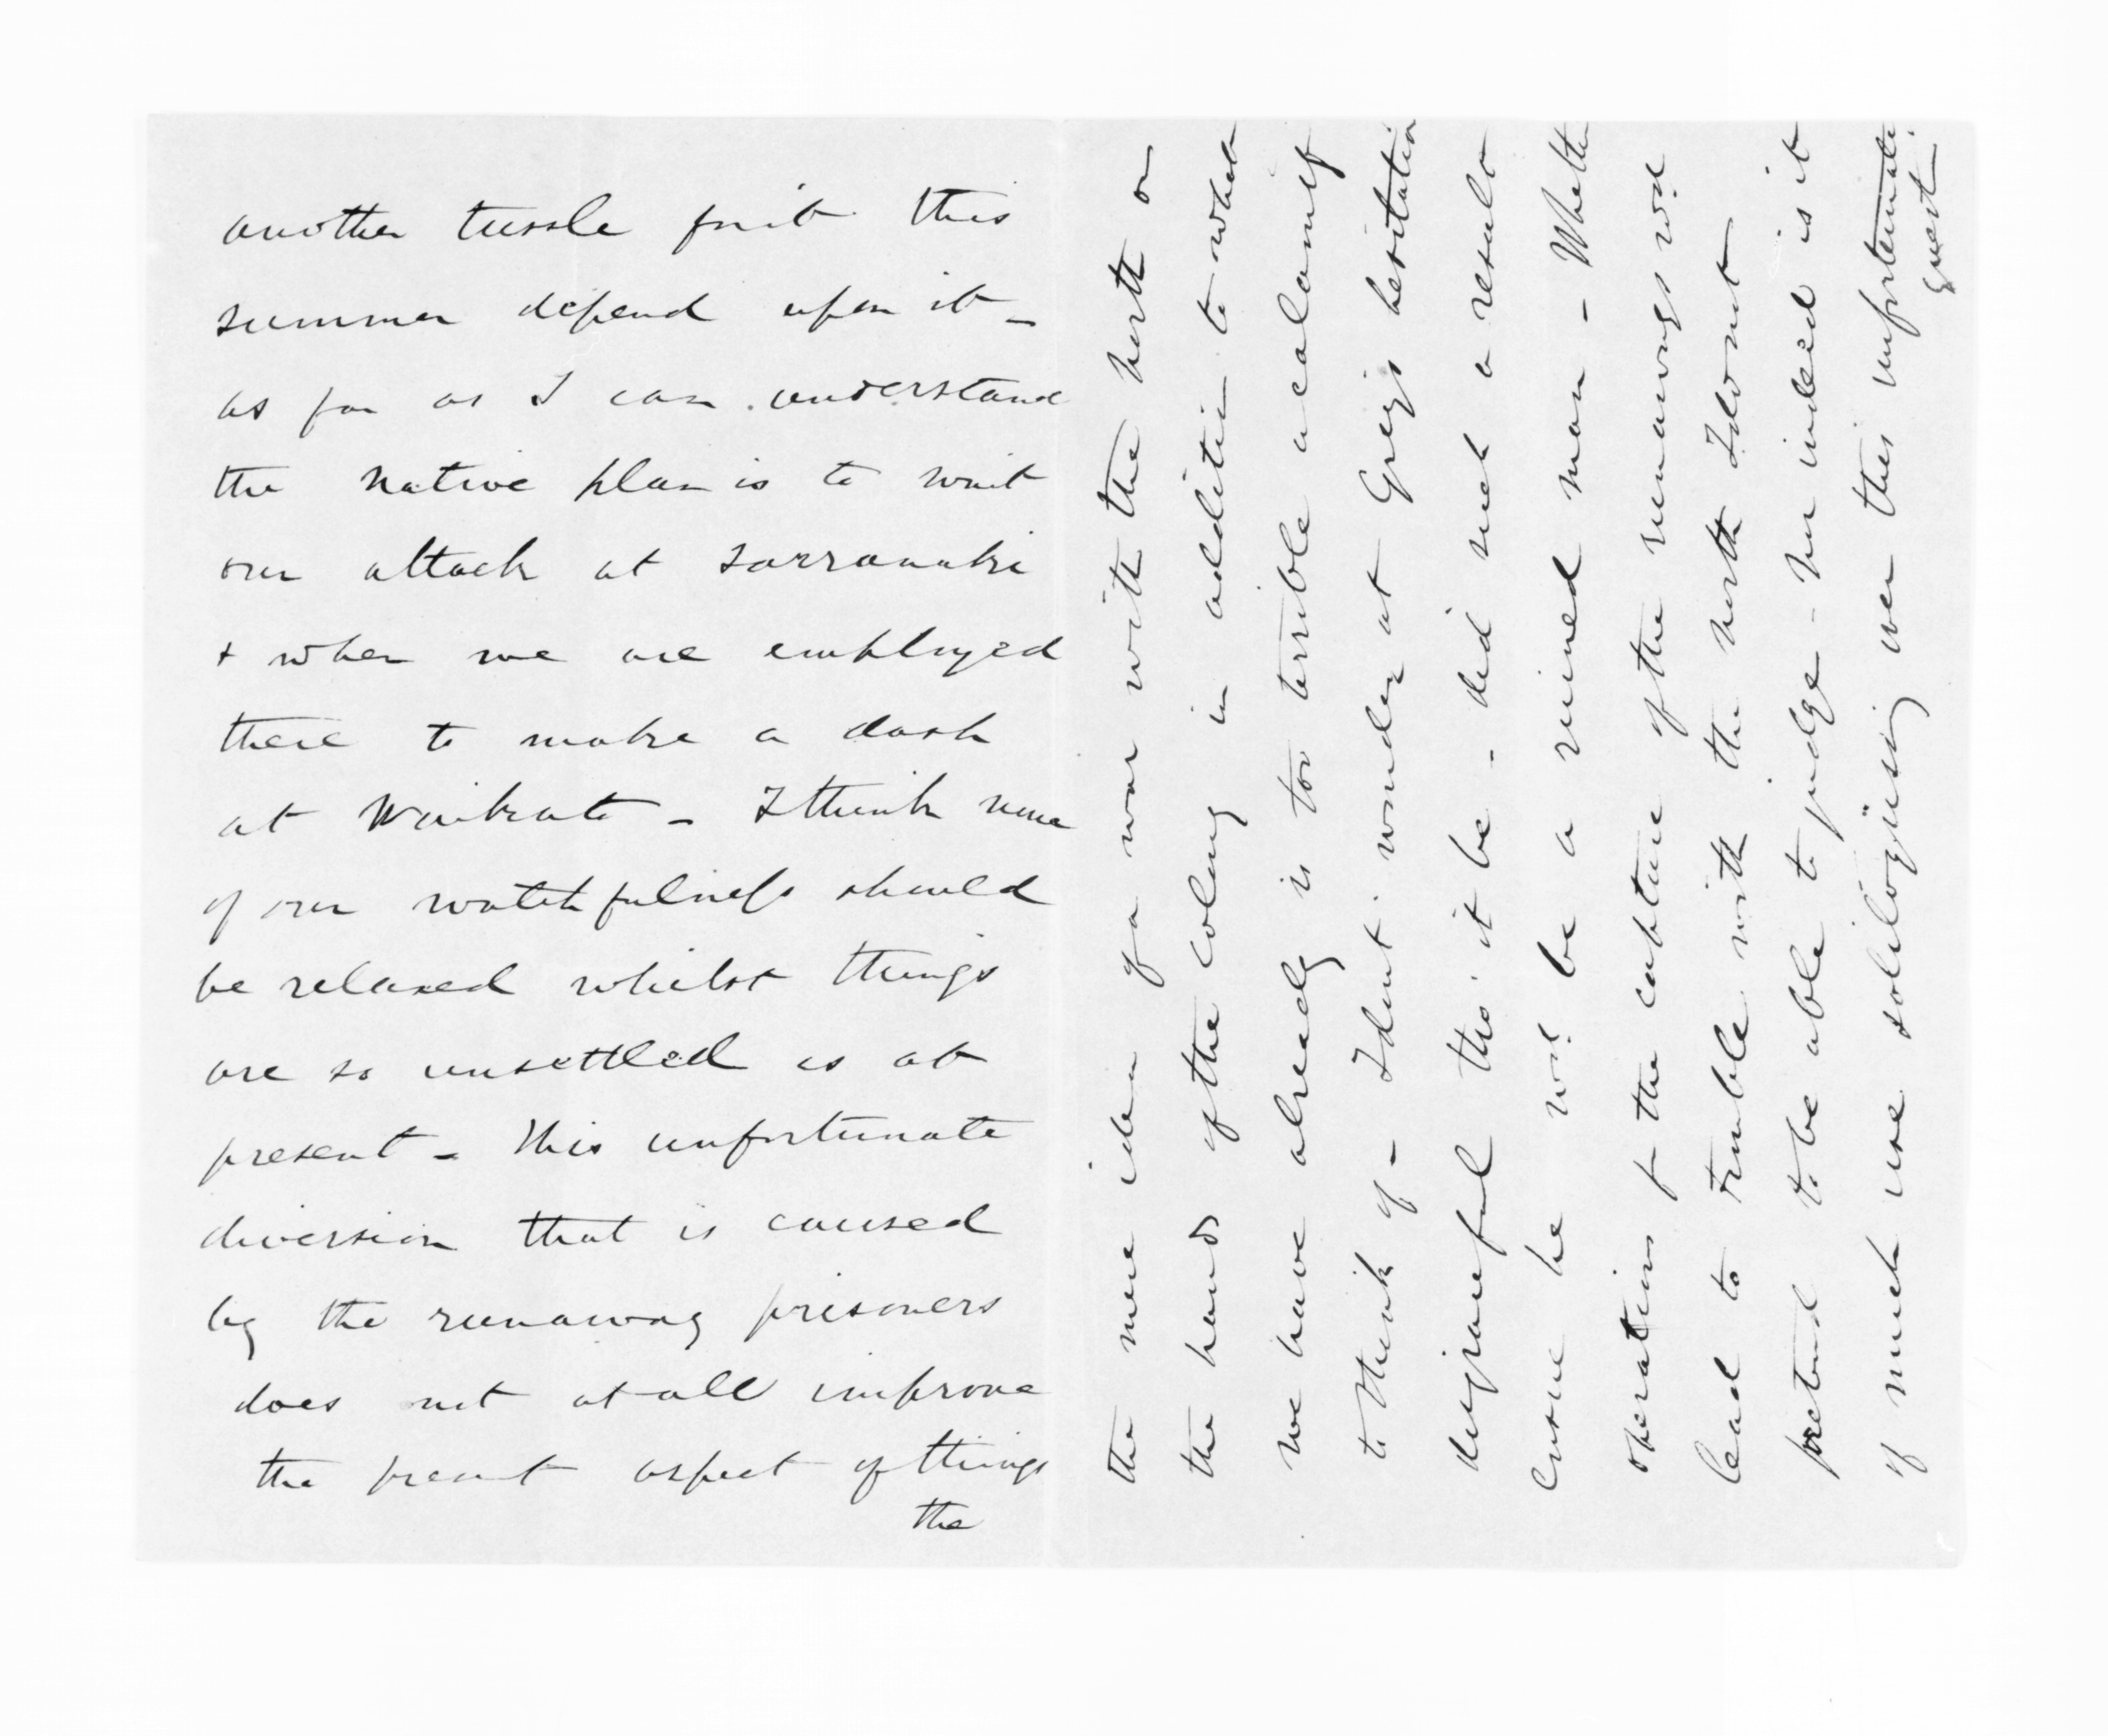 another tussle for it this
summer depend upon it _
as far as I can understand
the native plan is to wait
our attack at Tarranaki
+ when we are employed
there to make a dash
at Waikato _ I think none
of our watchfulness should
be relaxed whilst things
are so unsettled as at
present _ This unfortunate
diversion that is caused
by the runaway prisoners
does not at all improve
the present aspect of things
the
the mere idea of a war with the north on
the hands of the colony in addition to what
we have already is too terrible a calamity
to think of _ I dont wonder at Grey's hesitation
disgraceful tho' it be _ did such a result
ensue he wd. be a ruined man _ Whether
operations f the capture of the runaways wd.
lead to trouble with the north I dont
pretend to be able to judge _ nor indeed is it
of much use soliloquising over this unfortunate
quest.